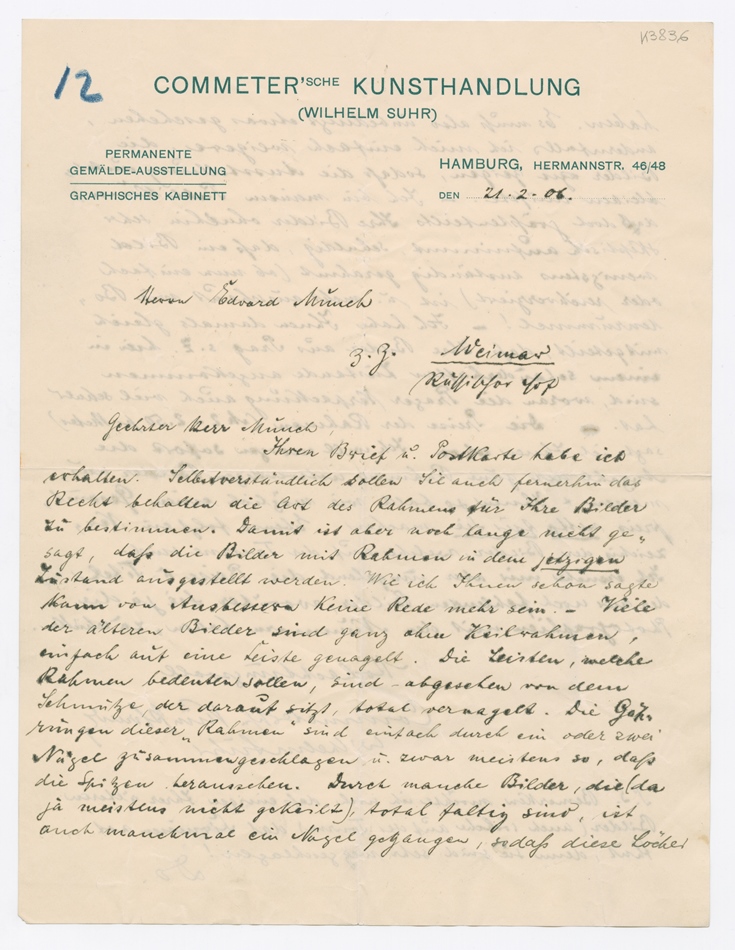 K3836
12
COMMETER'SCHE KUNSTHANDLUNG
(WILHELM SUHR)
PERMANENTE
GEMÄLDE-AUSSTELLUNG
GRAPHISCHES KABINETT
HAMBURG, HERMANNSTR. 46/48
DEN 21.2.06.
Herrn Edvard Munch
z. Z. Weimar
Russischer Hof
Geehrter Herr Munch
Ihren Brief u. Postkarte habe ich
erhalten. Selbstverständlich sollen Sie auch fernerhin das
Recht behalten die Art des Rahmens für Ihre Bilder
zu bestimmen. Damit ist aber noch lange nicht ge-
sagt, daß die Bilder mit Rahmen in dem jetzigen
Zustand ausgestellt werden. Wie ich Ihnen schon sagte
kann von Ausbessern keine Rede mehr sein. – Viele
der älteren Bilder sind ganz ohne Keilrahmen,
einfach auf eine Leiste genagelt. Die Leisten, welche
Rahmen bedeuten sollen, sind – abgesehen von dem
Schmutze, der darauf sitzt, total vernagelt. Die Gäh-
rungen dieser „Rahmen“ sind einfach durch ein oder zwei
Nägel zusammengeschlagen u. zwar meistens so, daß
die Spitzen heraussehen. Durch manche Bilder, die (da
ja meistens nicht gekeilt), total faltig sind, ist
auch manchmal ein Nagel gegangen, sodaß diese Löcher